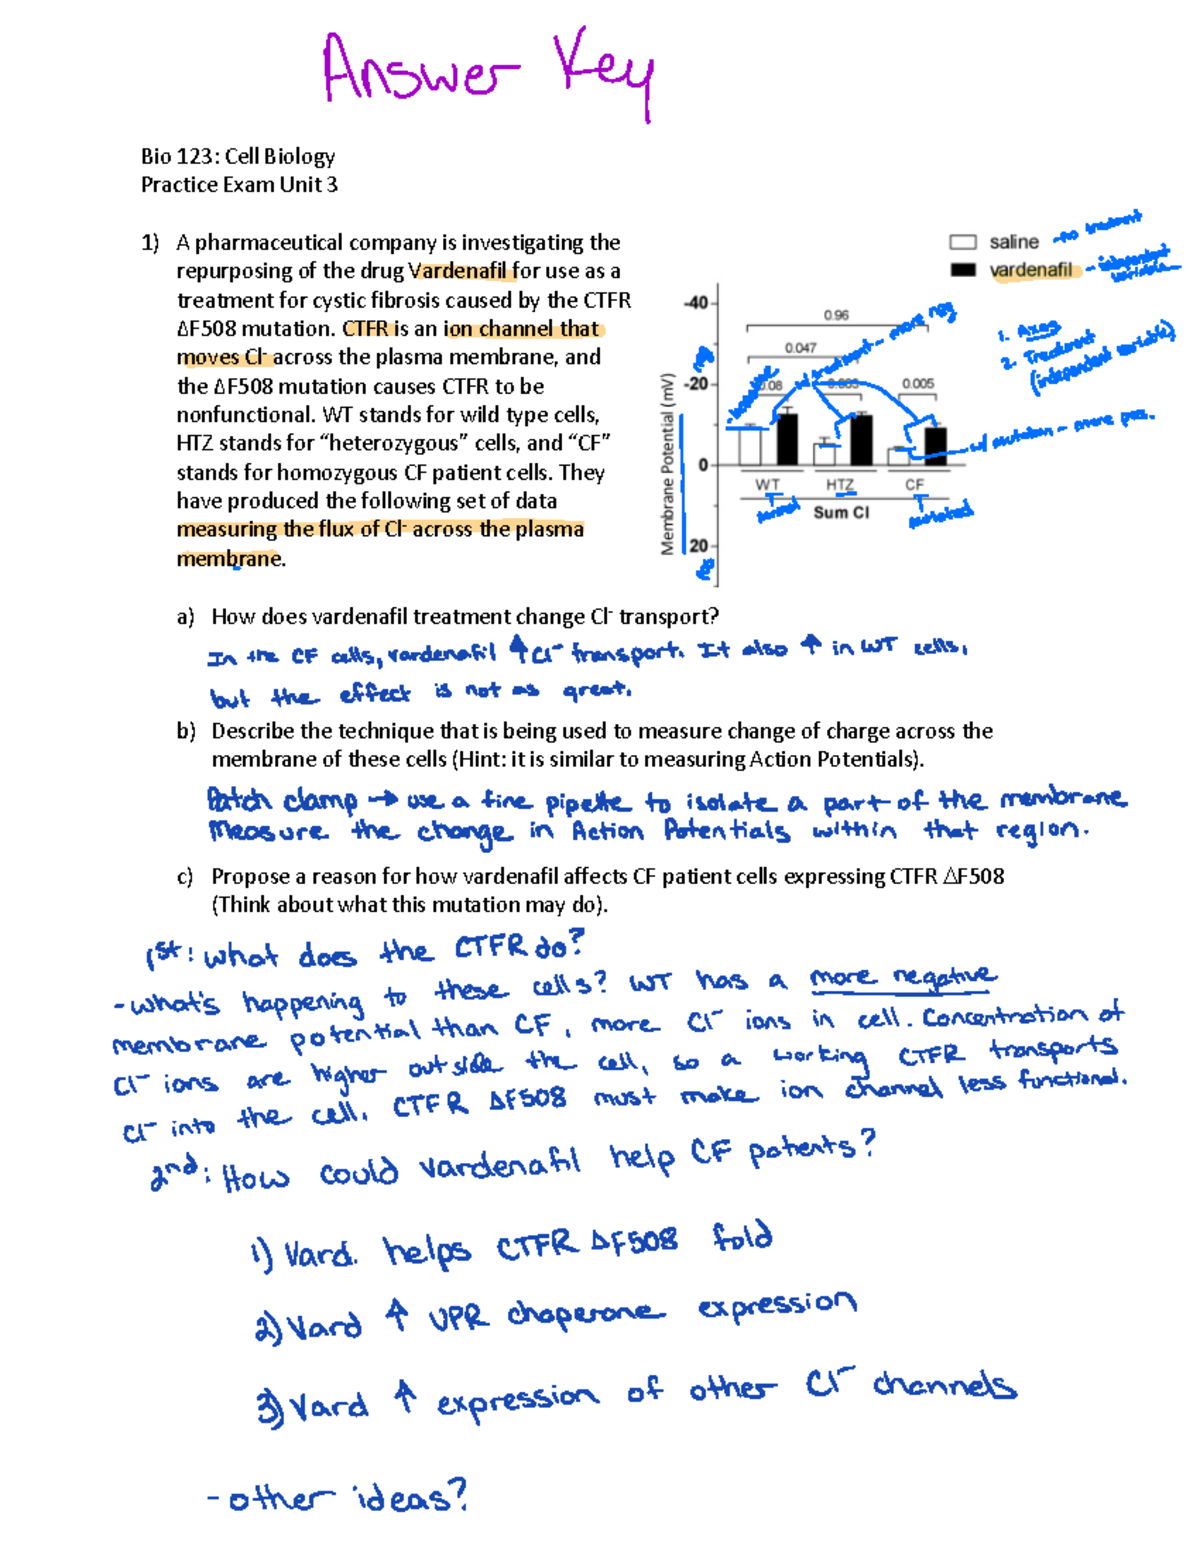 Answer Key
Bio 123: Cell Biology
Practice Exam Unit 3
1) A pharmaceutical company is investigating the
repurposing of the drug Vardenafil for use as a
treatment for cystic fibrosis caused by the CTFR
ΔF508 mutation. CTFR is an ion channel that
moves Cl- across the plasma membrane, and
the ΔF508 mutation causes CTFR to be
nonfunctional. WT stands for wild type cells,
HTZ stands for “heterozygous” cells, and “CF”
stands for homozygous CF patient cells. They
have produced the following set of data
measuring the flux of Cl- across the plasma
membrane.
saline - no treatment
vardenafil - independent variable
1. Axes
2. Treatment
(independent variable)
-40
-20
0
20
neg
pos
Membrane Potential (mV)
0.96
0.047
0.08
0.005
w/ treatment - more neg
w/ mutation - more pos.
WT
HTZ
CF
normal
mutated
Sum Cl
a) How does vardenafil treatment change Cl- transport?
In the CF cells, vardenafil ↑ Cl- transport. It also ↑ in WT cells,
but the effect is not as great.
b) Describe the technique that is being used to measure change of charge across the
membrane of these cells (Hint: it is similar to measuring Action Potentials).
Patch clamp → use a fine pipette to isolate a part of the membrane
Measure the change in Action Potentials within that region.
c) Propose a reason for how vardenafil affects CF patient cells expressing CTFR ΔF508
(Think about what this mutation may do).
1st: what does the CTFR do?
- what's happening to these cells? WT has a more negative
membrane potential than CF, more Cl- ions in cell. Concentration of
Cl- ions are higher outside the cell, so a working CTFR transports
Cl- into the cell. CTFR ΔF508 must make ion channel less functional.
2nd: How could vardenafil help CF patients?
1) Vard. helps CTFR ΔF508 fold
2) Vard ↑ UPR chaperone expression
3) Vard ↑ expression of other Cl- channels
- other ideas?